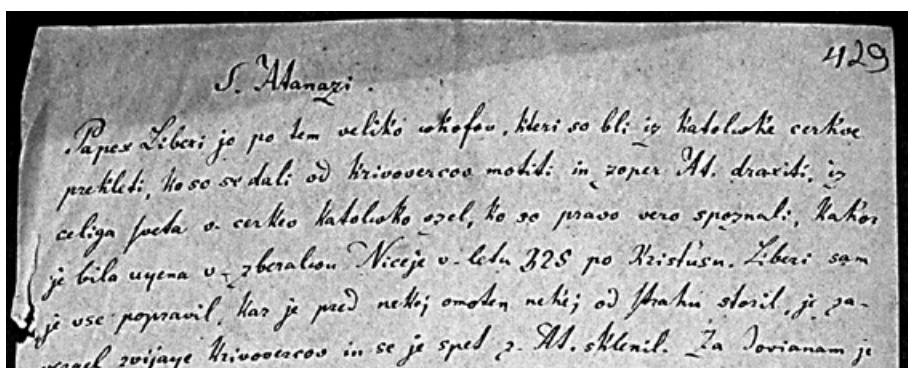 429
S. Atanazi.
Papex Liberi je po tem veliko kteri so bli iz cerkve
prekleti, ko so se dali od krivovercov motiti in zoper At. draxiti, iz
celiga sveta v cerkev ko so pravo vero spoznali, kakor
je bila uyena v Niceje v letu 325 po Kristusu. Liberi sam
je vse popravil, kar je pred nekoj omoten nekej od strahu storil, je za-
zvijaye krivovercov in se je spet z. At. sklenil. Za Jovianam je